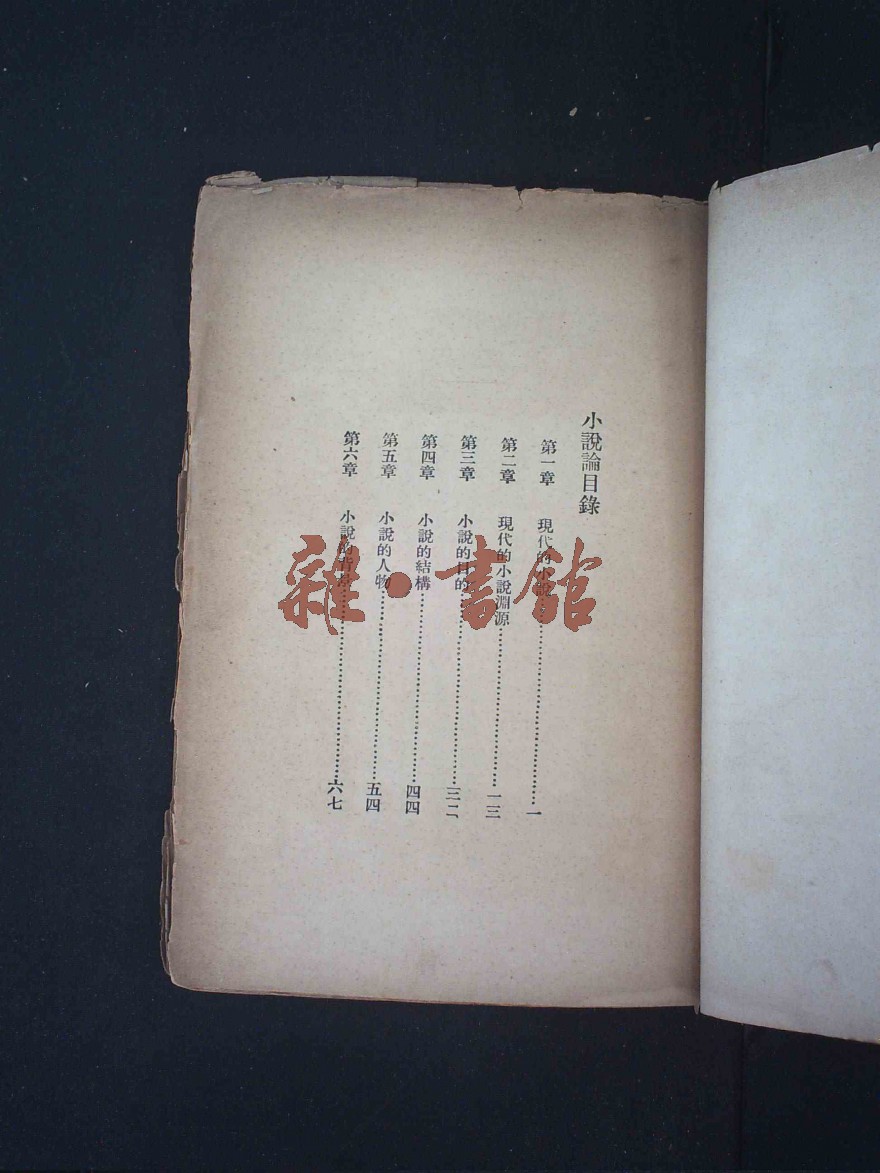 小說論目錄
第一章 現代的小說⋯⋯⋯⋯⋯⋯⋯⋯一
第二章 現代的小說淵源⋯⋯⋯⋯⋯⋯⋯⋯一三
第三章 小說的目的⋯⋯⋯⋯⋯⋯⋯⋯三二
第四章 小說的結構⋯⋯⋯⋯⋯⋯⋯⋯四四
第五章 小說的人物⋯⋯⋯⋯⋯⋯⋯⋯五四
第六章 小說的⋯⋯⋯⋯⋯⋯⋯⋯六七
雜·書館